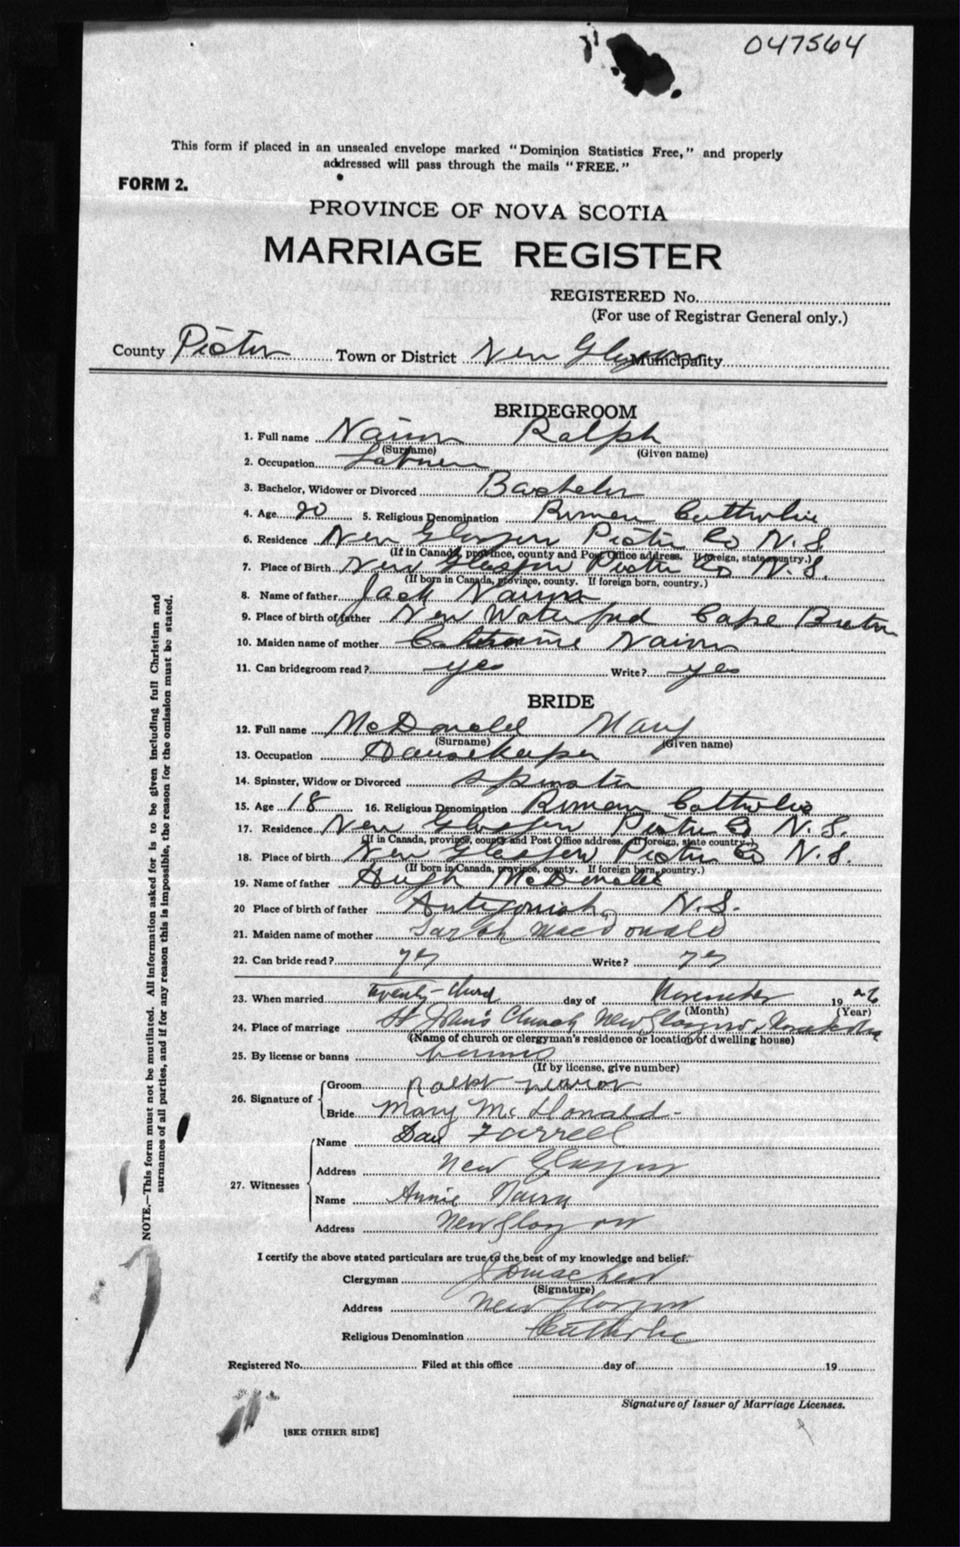 047564
This form if placed in an unsealed envelope marked "Dominion Statistics Free," and properly
addressed will pass through the mails "FREE."
FORM 2.
PROVINCE OF NOVA SCOTIA
MARRIAGE REGISTER
REGISTERED No.
(For use of Registrar General only.)
County Pictou Town or District New Glasgow Municipality
BRIDEGROOM
1. Full name Nairn Ralph
(Surname) (Given name)
2. Occupation Laborer
3. Bachelor, Widower or Divorced Bachelor
4. Age 20 5. Religious Denomination Roman Catholic
6. Residence New Glasgow Pictou Co N.S.
(If in Canada, province, county and Post Office address. If foreign, state country.)
7. Place of Birth New Glasgow Pictou Co N.S.
(If born in Canada, province, county. If foreign born, country.)
8. Name of father Jack Nairn
9. Place of birth of father New Waterford Cape Breton
10. Maiden name of mother Catherine Nairn
11. Can bridegroom read? yes Write? yes
BRIDE
12. Full name McDonald Mary
(Surname) (Given name)
13. Occupation Housekeeper
14. Spinster, Widow or Divorced Spinster
15. Age 18 16. Religious Denomination Roman Catholic
17. Residence New Glasgow Pictou Co N.S.
(If in Canada, province, county and Post Office address. If foreign, state country.)
18. Place of birth New Glasgow Pictou Co N.S.
(If born in Canada, province, county. If foreign born, country.)
19. Name of father Hugh McDonald
20 Place of birth of father Antigonish, N.S.
21. Maiden name of mother Sarah MacDonald
22. Can bride read? yes Write? yes
23. When married twenty-third day of November 1926
(Month) (Year)
24. Place of marriage St John's Church, New Glasgow, Nova Scotia
(Name of church or clergyman's residence or location of dwelling house)
25. By license or banns banns
(If by license, give number)
26. Signature of
Groom Ralph
Bride Mary McDonald
27. Witnesses
Name Dan Farrell
Address New Glasgow
Name Annie Nairn
Address New Glasgow
I certify the above stated particulars are true to the best of my knowledge and belief.
Clergyman
(Signature)
Address New Glasgow
Religious Denomination Catholic
Registered No. Filed at this office day of 19
Signature of Issuer of Marriage Licenses.
[SEE OTHER SIDE]
NOTE.—This form must not be mutilated. All information asked for is to be given including full Christian and
surnames of all parties, and if for any reason this is impossible, the reason for the omission must be stated.